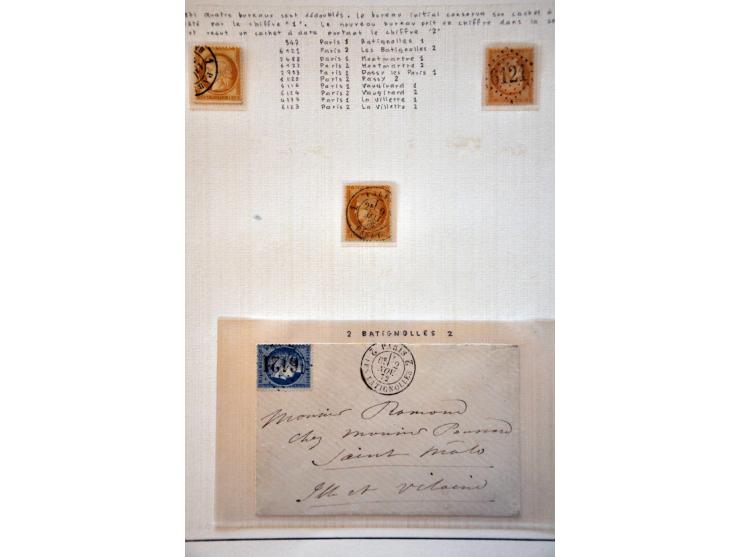 quatre bureaux sont dédoublés. Le bureau initial conserva son cachet à
par le chiffre "1". Le nouveau bureau prit un chiffre dans la
et reçut un cachet à date portant le chiffre "2"
Paris 1 Batignolles 1
6121 Paris 2 Les Batignolles 2
2488 Paris 1 Montmartre 1
6122 Paris 2 Montmartre 2
2793 Paris 1 Passy les Paris 1
Paris 2 Passy 2
Paris 1 Vaugirard 1
6124 Paris 2 Vaugirard 2
Paris 1 La Villette 1
6123 Paris 2 La Villette 2
6121
2 BATIGNOLLES 2
6121
2 PARIS 2
NOV
BATIGNOLLES
Monsieur Ramond
chez monsieur
Saint Malo
Ille et Vilaine